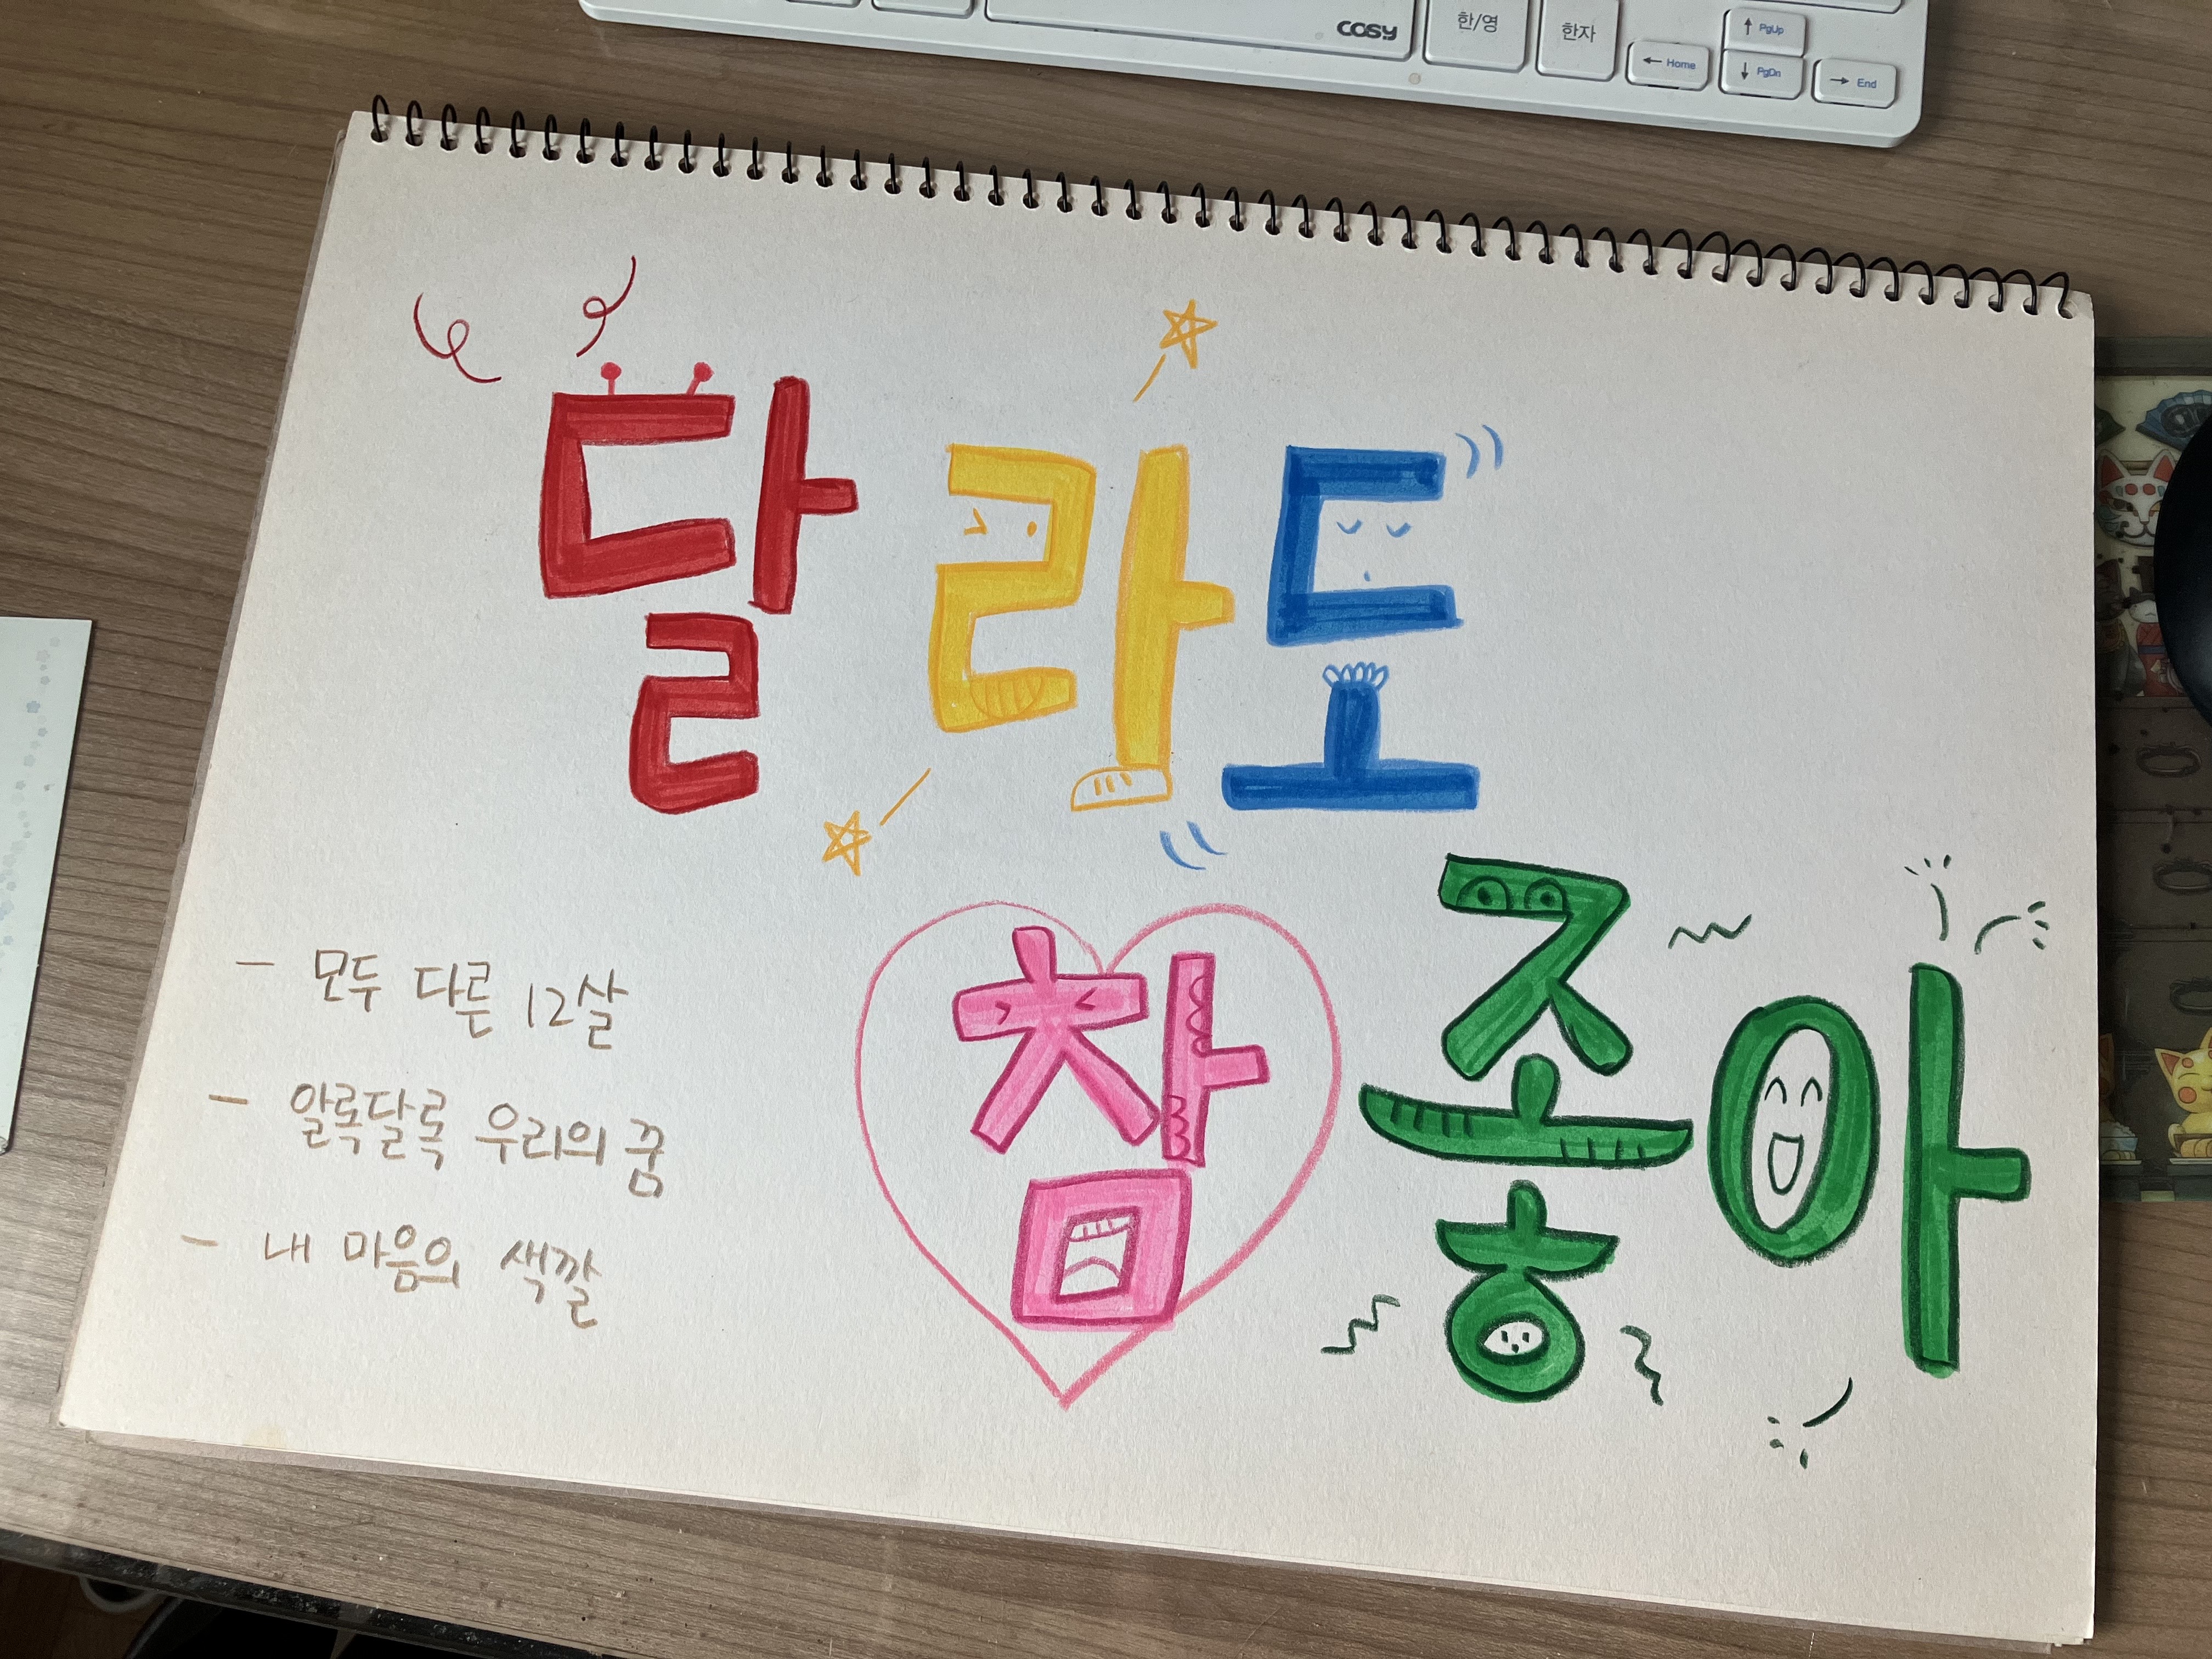 cosy 한/영 한자 ← Home ↑ PgUp ↓ PgDn → End
달라도
참 좋아
- 모두 다른 12살
- 알록달록 우리의 꿈
- 내 마음의 색깔